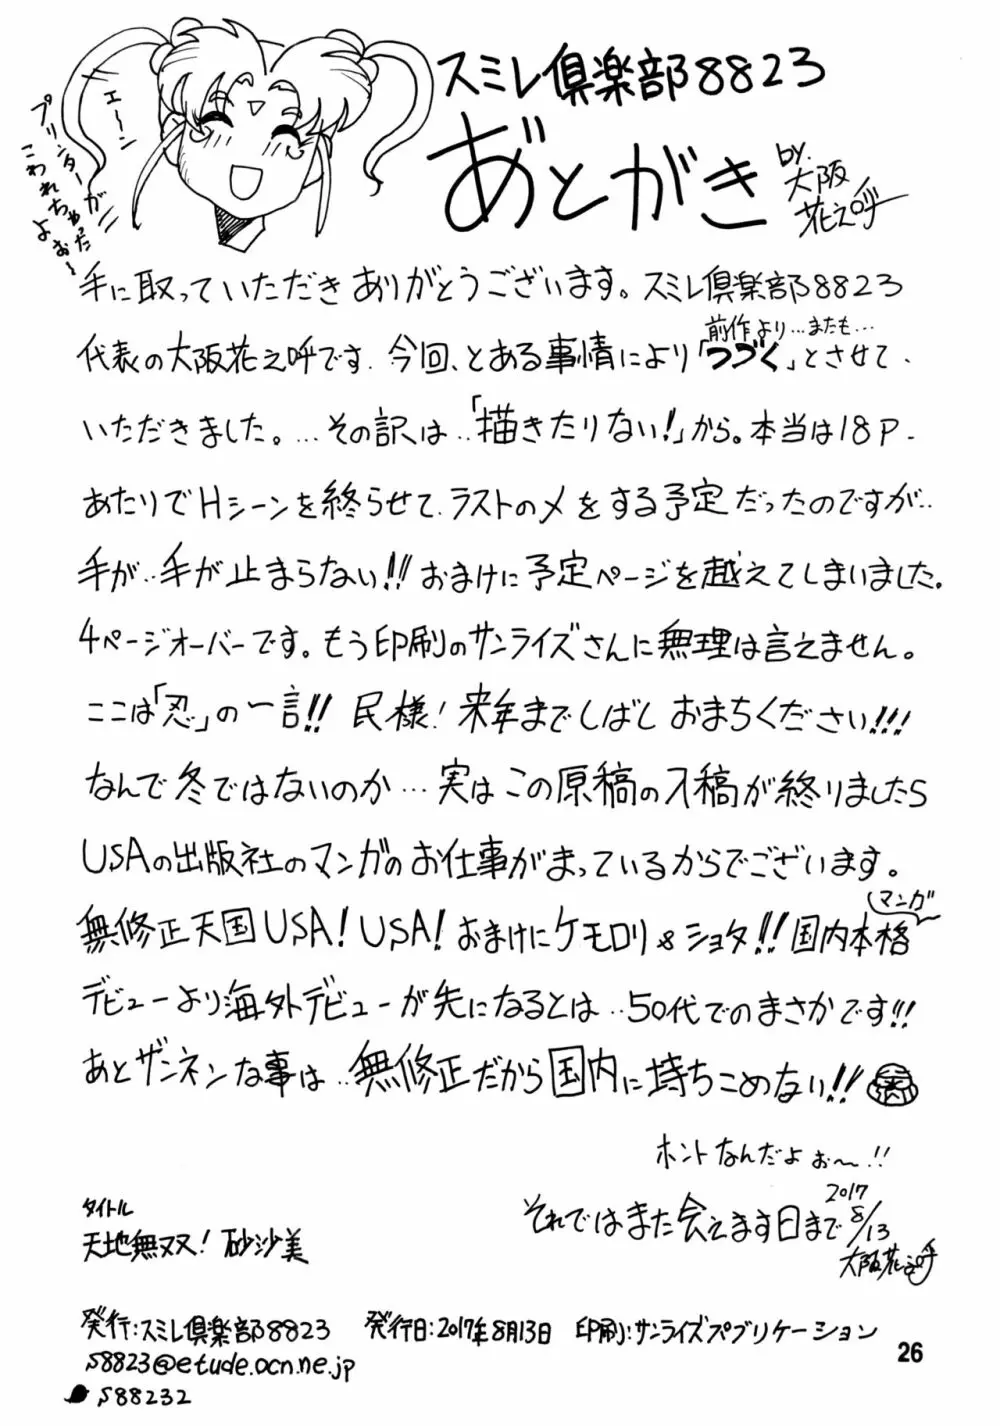 スミレ倶楽部8823
あとがき
by.
大阪
花之呼
エ〜ン
プリンターが
こわれちゃった
よぉ〜
手に取っていただきありがとうございます。スミレ倶楽部8823
前作より…またも…
代表の大阪花之呼です. 今回、とある事情により「つづく」とさせて、
いただきました。…その訳は‥「描きたりない!」から。本当は18P.
あたりでHシーンを終らせて、ラストの〆をする予定だったのですが‥
手が‥手が止まらない!! おまけに予定ページを越えてしまいました.
4ページオーバーです。もう印刷のサンライズさんに無理は言えません。
ここは「忍」の一言!! 民様! 来年までしばしおまちください!!!
なんで冬ではないのか…実はこの原稿の入稿が終りましたら
USAの出版社のマンガのお仕事がまっているからでございます。
マンガ
無修正天国USA! USA! おまけにケモロリ&ショタ!! 国内本格
デビューより海外デビューが先になるとは‥50代でのまさかです!!
あとザンネンな事は‥無修正だから国内に持ちこめない!!
ホントなんだよぉ〜!!
それではまた会えます日まで 2017
8/13
大阪花之呼
タイトル
天地無双! 砂沙美
発行:スミレ倶楽部8823 発行日:2017年8月13日 印刷:サンライズパブリケーション
s8823@etude.ocn.ne.jp
s88232
26